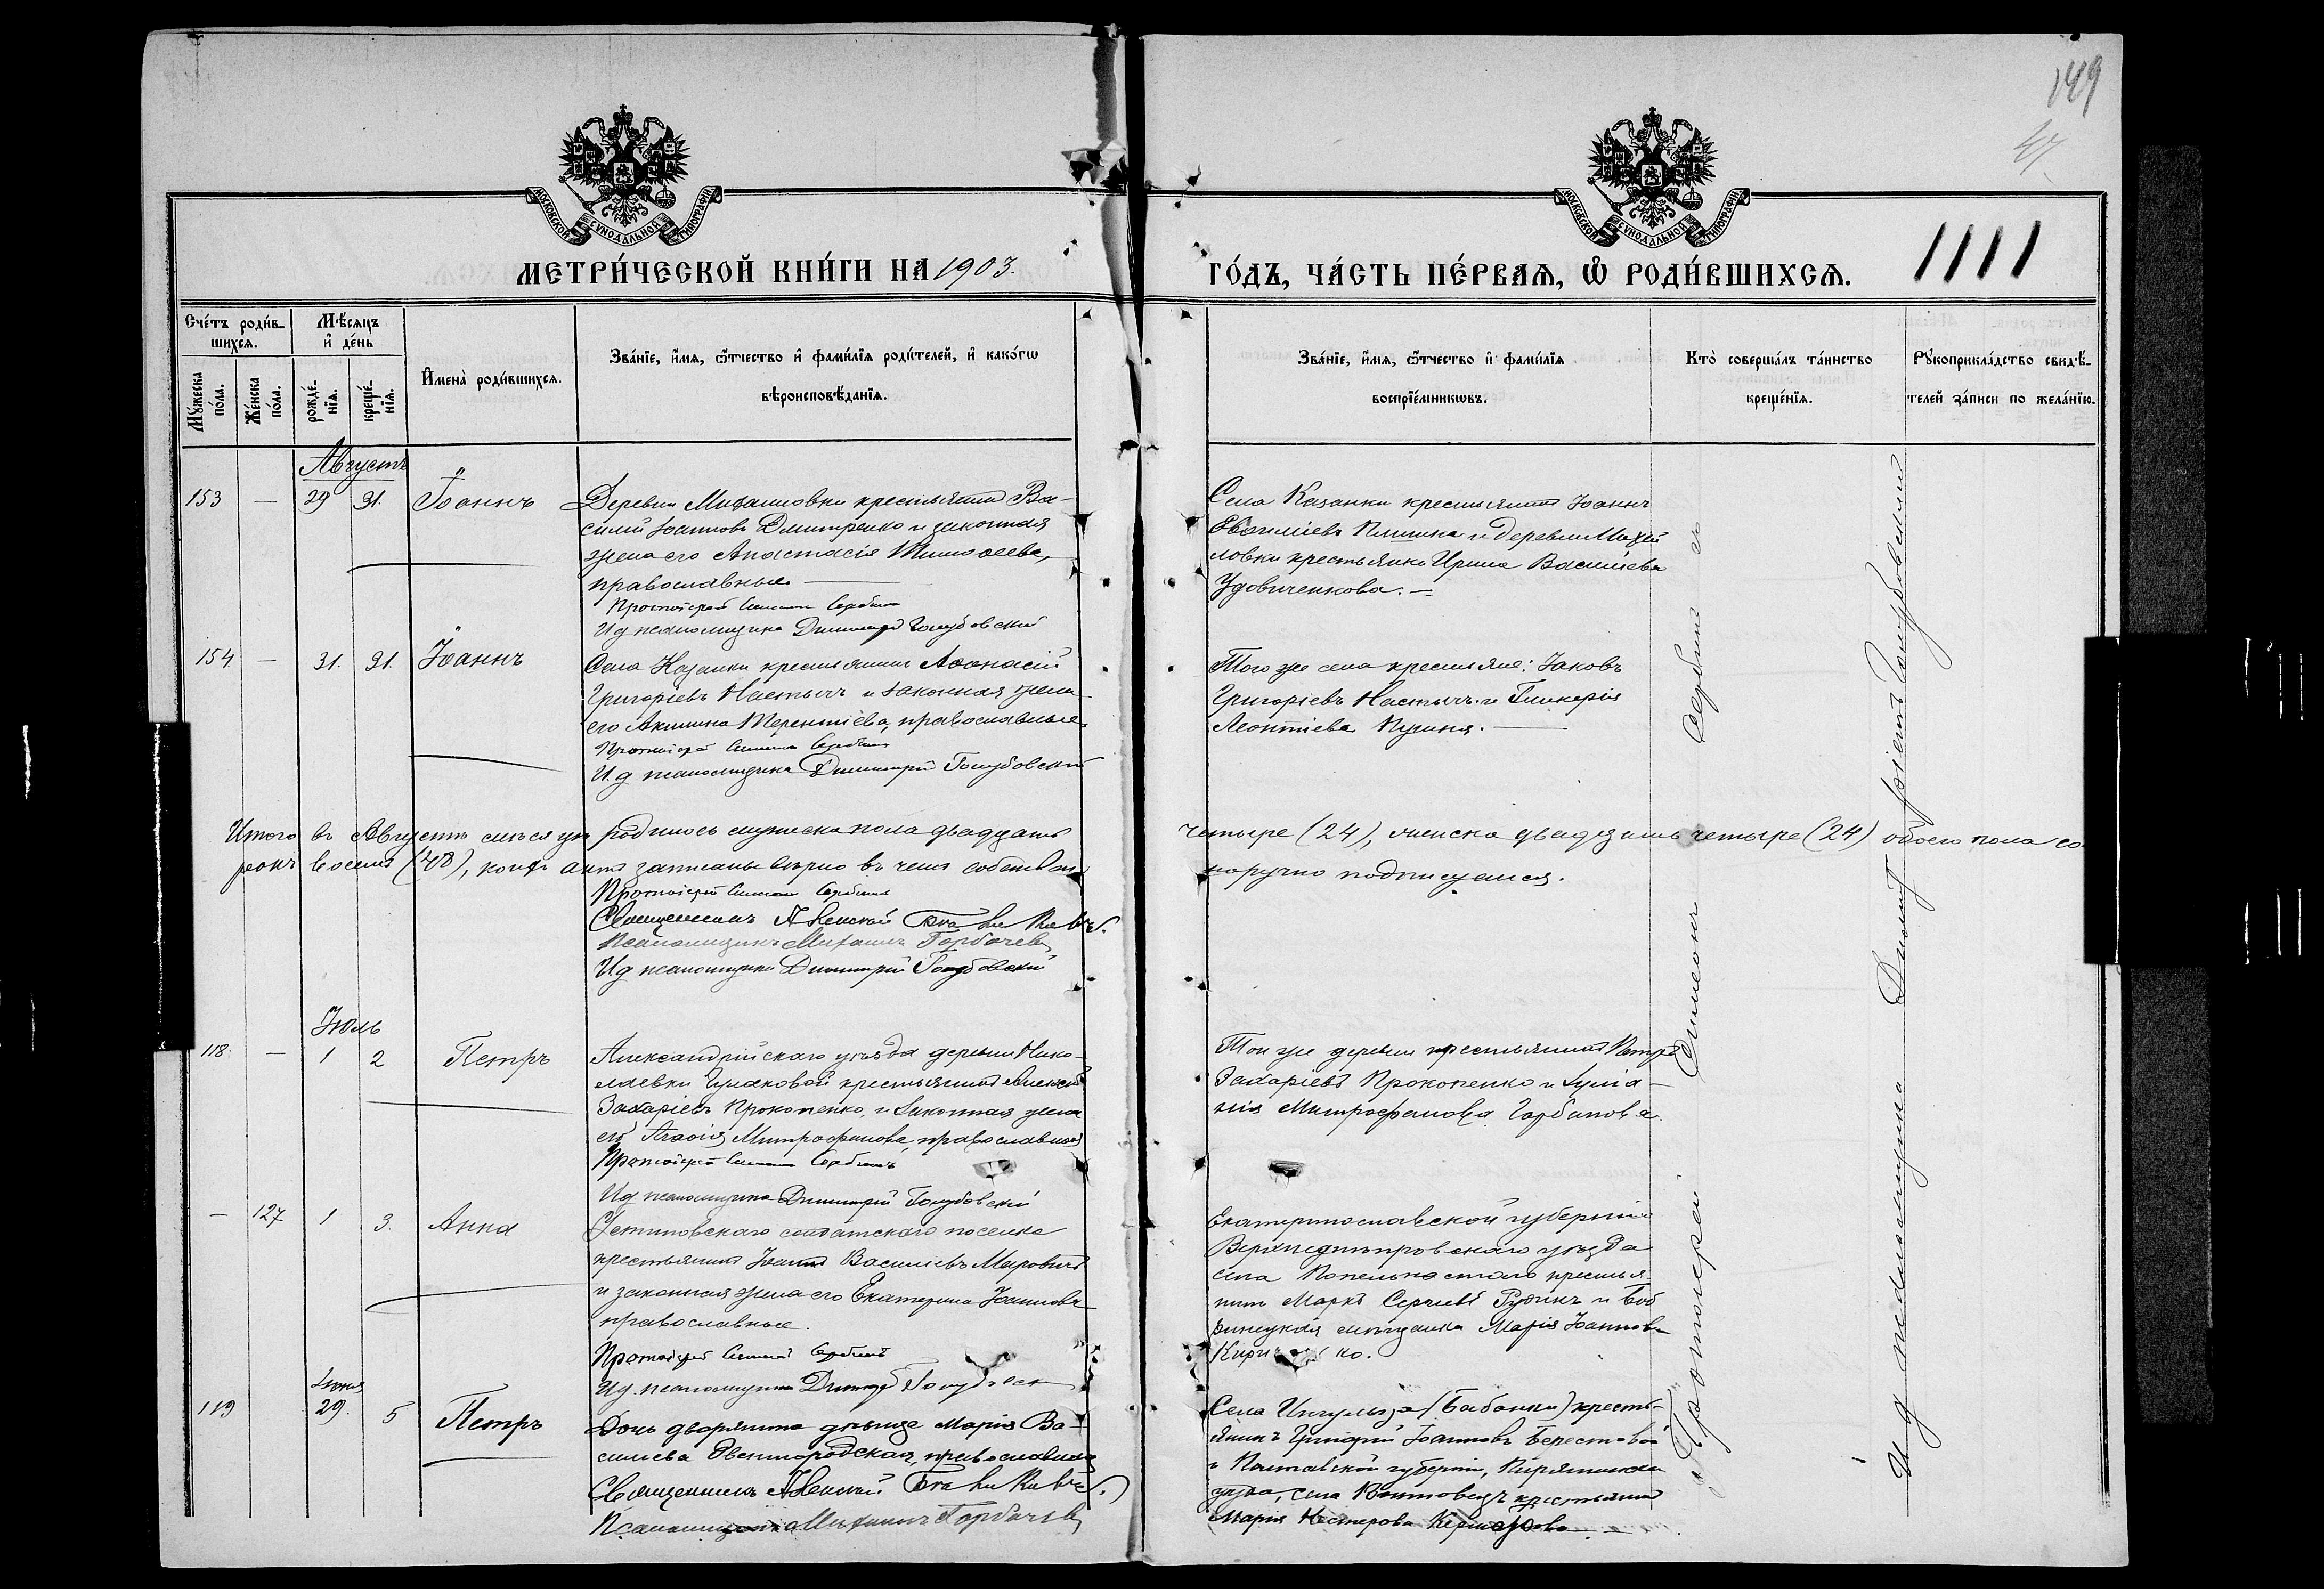 149
47
МОСКОВСКОЙ СѴНОДАЛЬНОЙ ТИПОГРАФІИ
МОСКОВСКОЙ СѴНОДАЛЬНОЙ ТИПОГРАФІИ
МЕТРИ́ЧЕСКОЙ КНИ́ГИ НА 1903.
ГО́ДЪ, ЧА́СТЬ ПЕ́РВАѦ, Ѡ҆ РОДИ́ВШИХСѦ. 1111
Сче́тъ роди́в-
шихсѧ.
Мѣ́сѧцъ
и҆ де́нь
Мꙋ́жеска
по́ла.
Же́нска
по́ла.
рожде́-
нїѧ.
креще́-
нїѧ.
И҆мена̀ роди́вшихсѧ.
Зва́нїе, и҆́мѧ, ѻ҆́тчество и҆ фами́лїѧ роди́телей, и҆ како́гѡ
вѣроисповѣ́данїѧ.
Зва́нїе, и҆́мѧ, ѻ҆́тчество и҆ фами́лїѧ
воспрїе́мникѡвъ.
Кто̀ соверша́лъ та́инство
креще́нїѧ.
Рꙋкоприкла́дство свидѣ́-
телей за́писи по жела́нїю.
Августъ
153 — 29 31. Іоаннъ
Деревни Михайловки крестьянинъ Ва-
силій Іоанновъ Дмитренко и законная
жена его Анастасія Тимоѳеева,
православные
Протоіерей Симеонъ Сербинъ
И д псаломщика Димитрій Голубовскій
Села Казанки крестьянинъ Іоаннъ
и деревни Михай
ловки крестьянка Ирина Васильева
Удовиченкова. —
154 — 31. 31. Іоаннъ
Села Казанки крестьянинъ Аѳанасій
Григоріевъ Настычъ и законная жена
его Акилина Терентіева, православные
Протоіерей Симеонъ Сербинъ
И. д псаломщика Димитрій Голубовскій
Того же села крестьяне: Іаковъ
Григоріевъ Настычъ и Гликерія
Леонтіева
Итого въ Августѣ мѣсяцѣ родилось мужска пола двадцать
четыре (24), женска двадцать четыре (24) обоего пола со-
рокъ восемь (48), коихъ акты записаны вѣрно въ чемъ собствен
норучно подписуемся.
Протоіерей Симеонъ Сербинъ
Священникъ Алексій
Псаломщикъ Михаилъ Горбачевъ
И д псаломщика Димитрій Голубовскій
Іюль
118. — 1 2 Петръ
Александрійскаго уѣзда деревни Нико-
лаевки крестьянинъ Алексій
Захаріевъ Прокопенко и законная жена
его Агаѳія Митрофанова, православные
Протоіерей Симеонъ Сербинъ
И д псаломщика Димитрій Голубовскій
Той же деревни крестьянинъ Петръ
Захаріевъ Прокопенко и Іуліа-
нія Митрофанова
— 127 1 3. Анна
Устиновскаго солдатскаго поселка
крестьянинъ Іоаннъ Васильевъ
и законная жена его Екатерина Іоаннова
православные.
Протоіерей Симеонъ Сербинъ
И д. псаломщика Димитрій Голубовскій
Екатеринославской губерніи
Верхнеднѣпровскаго уѣзда
села крестья-
нинъ Маркъ Сергіевъ и Боб
ринецкая мѣщанка Марія Іоаннова
119 Іюня 29. 5 Петръ
Дочь дворянина дѣвица Марія Ва-
сильева Звенигородская, православная
Священникъ Алексій
Псаломщикъ Михаилъ Горбачевъ
Села Ингульца (Бабанки) кресть-
янинъ Григорій Іоанновъ Берестовой
и Полтавской губерніи, Пирятинскаго
уѣзда, села крестьянка
Марія Нестерова
Протоіерей Симеонъ Сербинъ
И д псаломщика Димитрій Голубовскій